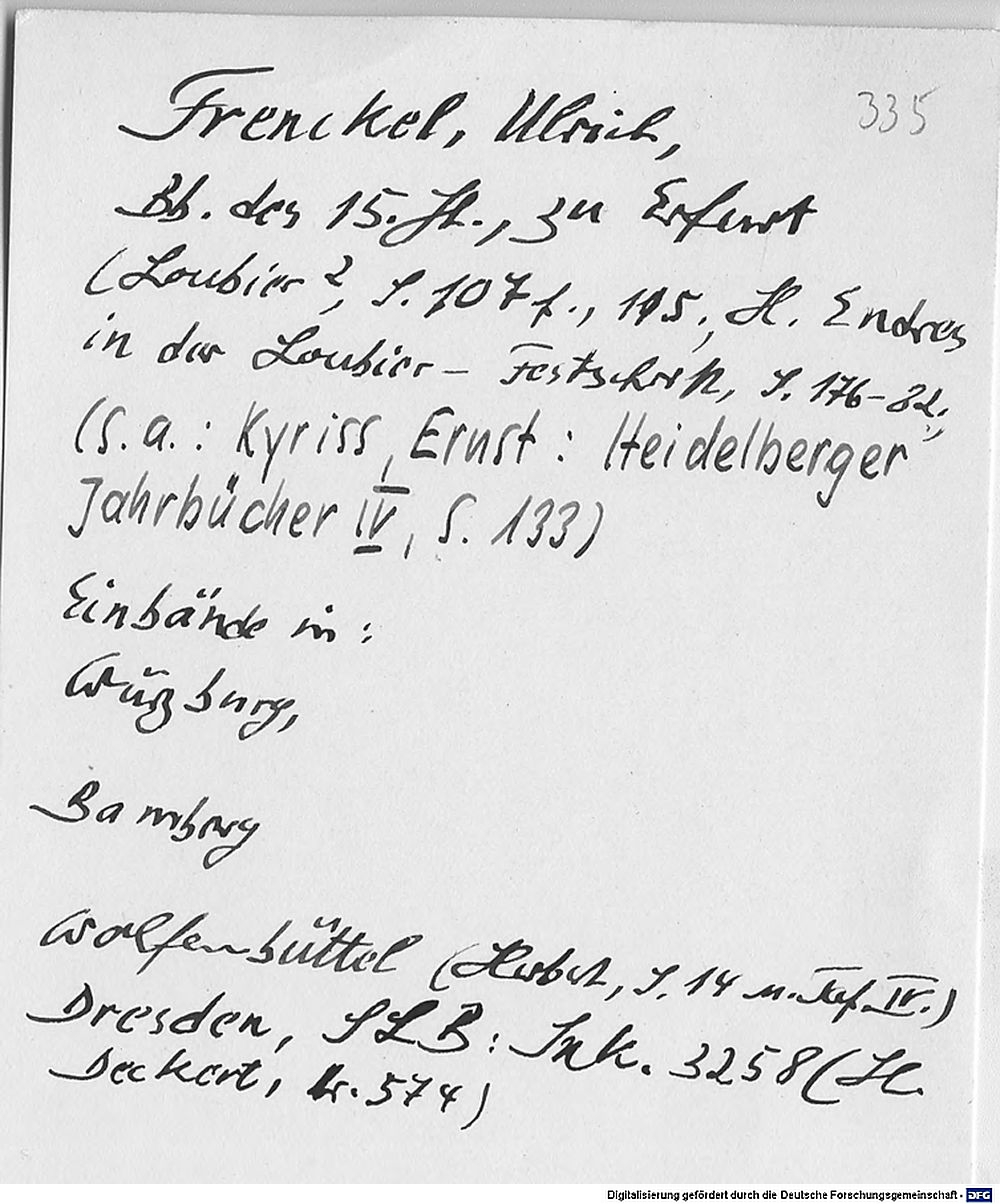 335
Frenckel, Ulrich,
Bb. des 15. Jh., zu Erfurt
(Loubier², S. 107 f., 115, H. Endres
in der Loubier - Festschrift, S. 176-82;
(s.a.: Kyriss, Ernst: Heidelberger
Jahrbücher IV, S. 133)
Einbände in:
Würzburg,
Bamberg
Wolfenbüttel (Herbst, S. 14 u. Taf. IV.)
Dresden, SLB: Ink. 3258 (H.
Deckert, Nr. 574)
Digitalisierung gefördert durch die Deutsche Forschungsgemeinschaft - DFG